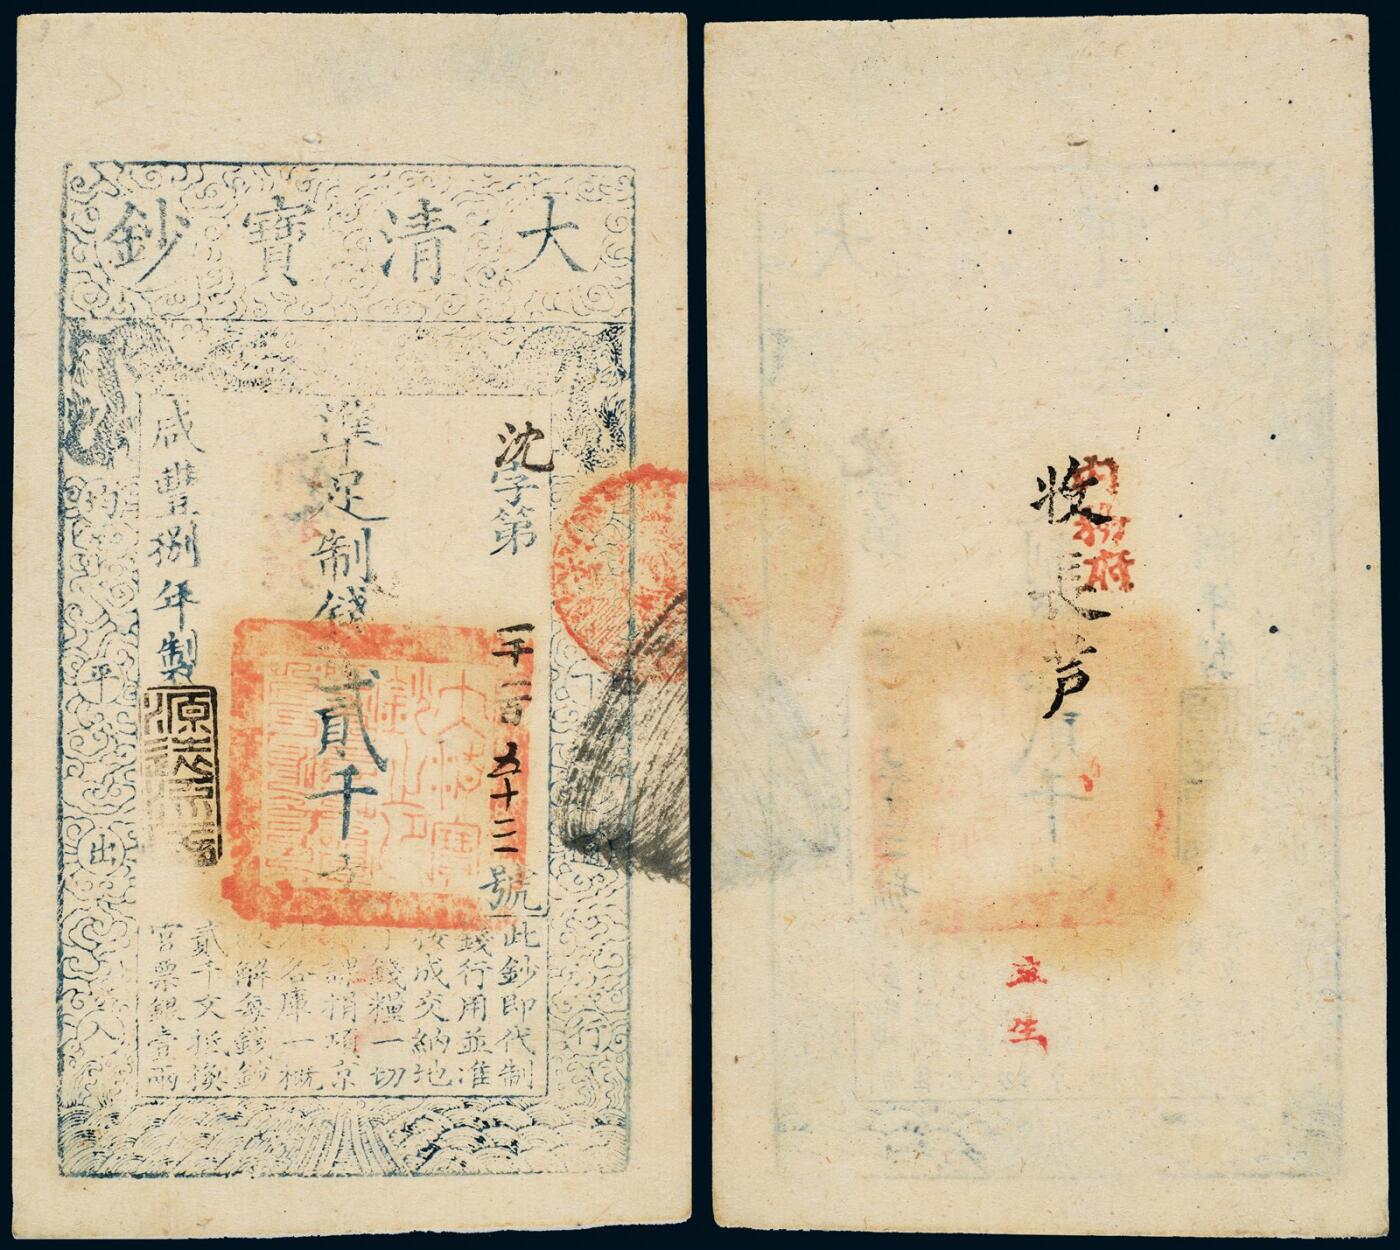 大清寶鈔
沈字第一千一百五十三號
準足制錢貳千文
咸豐捌年製
此鈔即代制
錢行用並准
按成交納地
丁錢糧一切
課捐項京
外各庫一概
收解每錢鈔
貳千文抵換
官票銀壹兩
均平出入
行
收長芦
內務府
立生